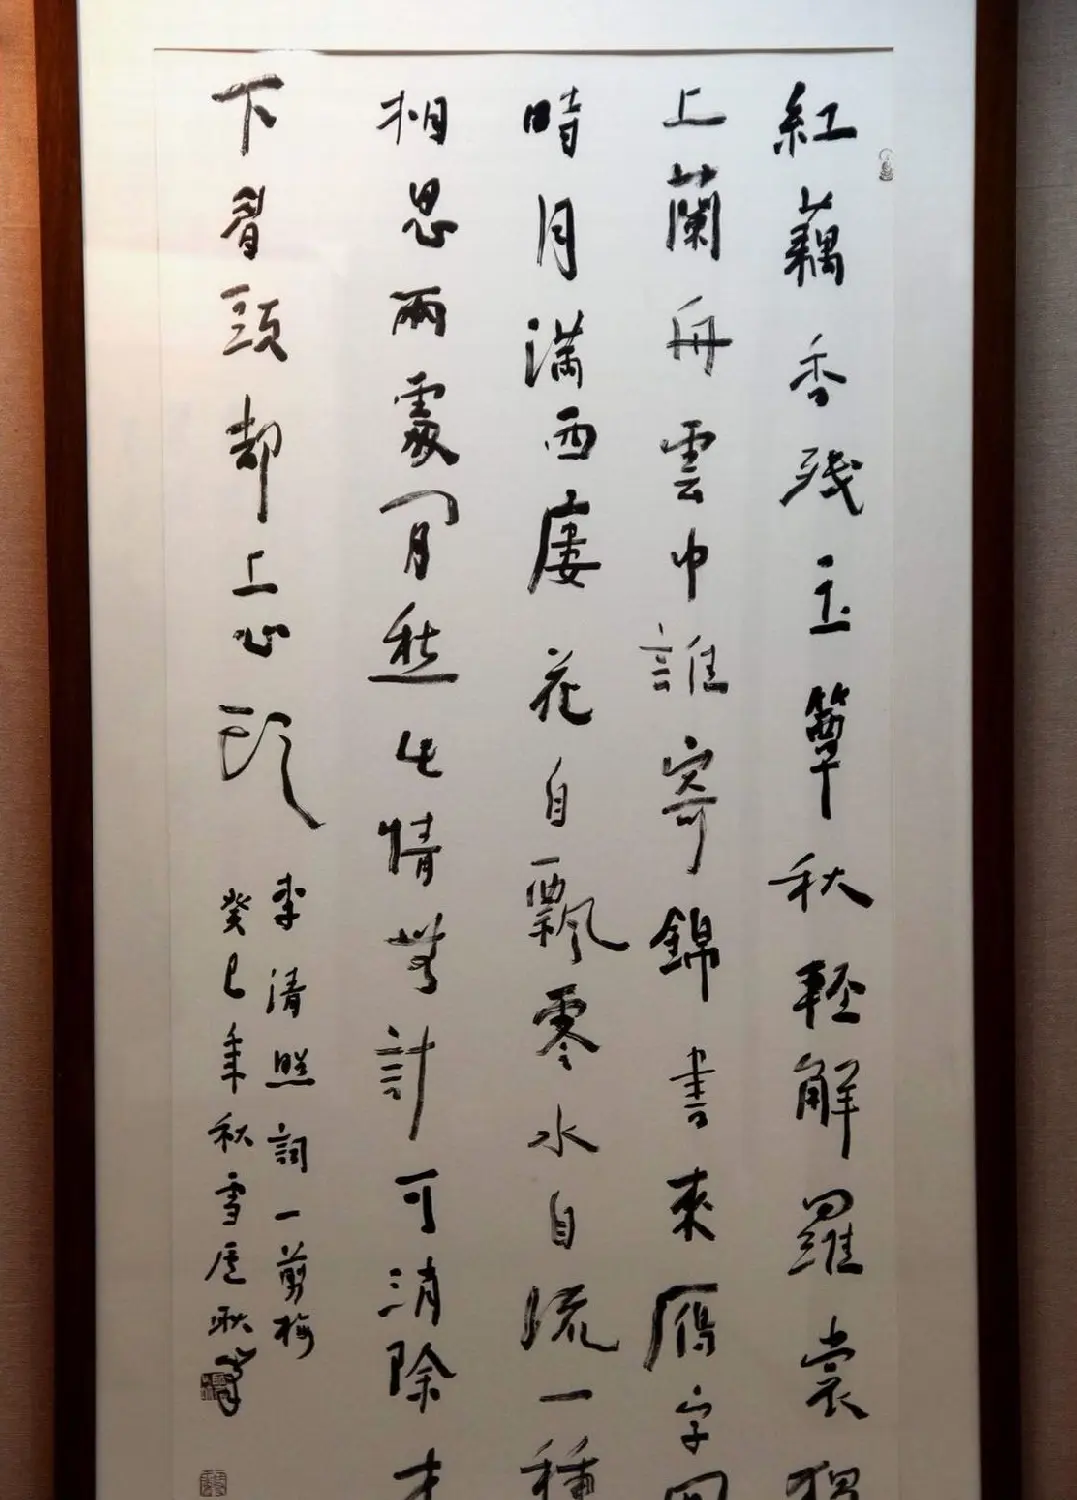 紅藕香残玉簟秋輕解羅裳獨
上蘭舟雲中誰寄錦書來雁字回
時月滿西廔花自飄零水自流一種
相思兩處閒愁此情無計可消除才
下眉頭却上心頭
李清照詞一剪梅
癸巳年秋雪